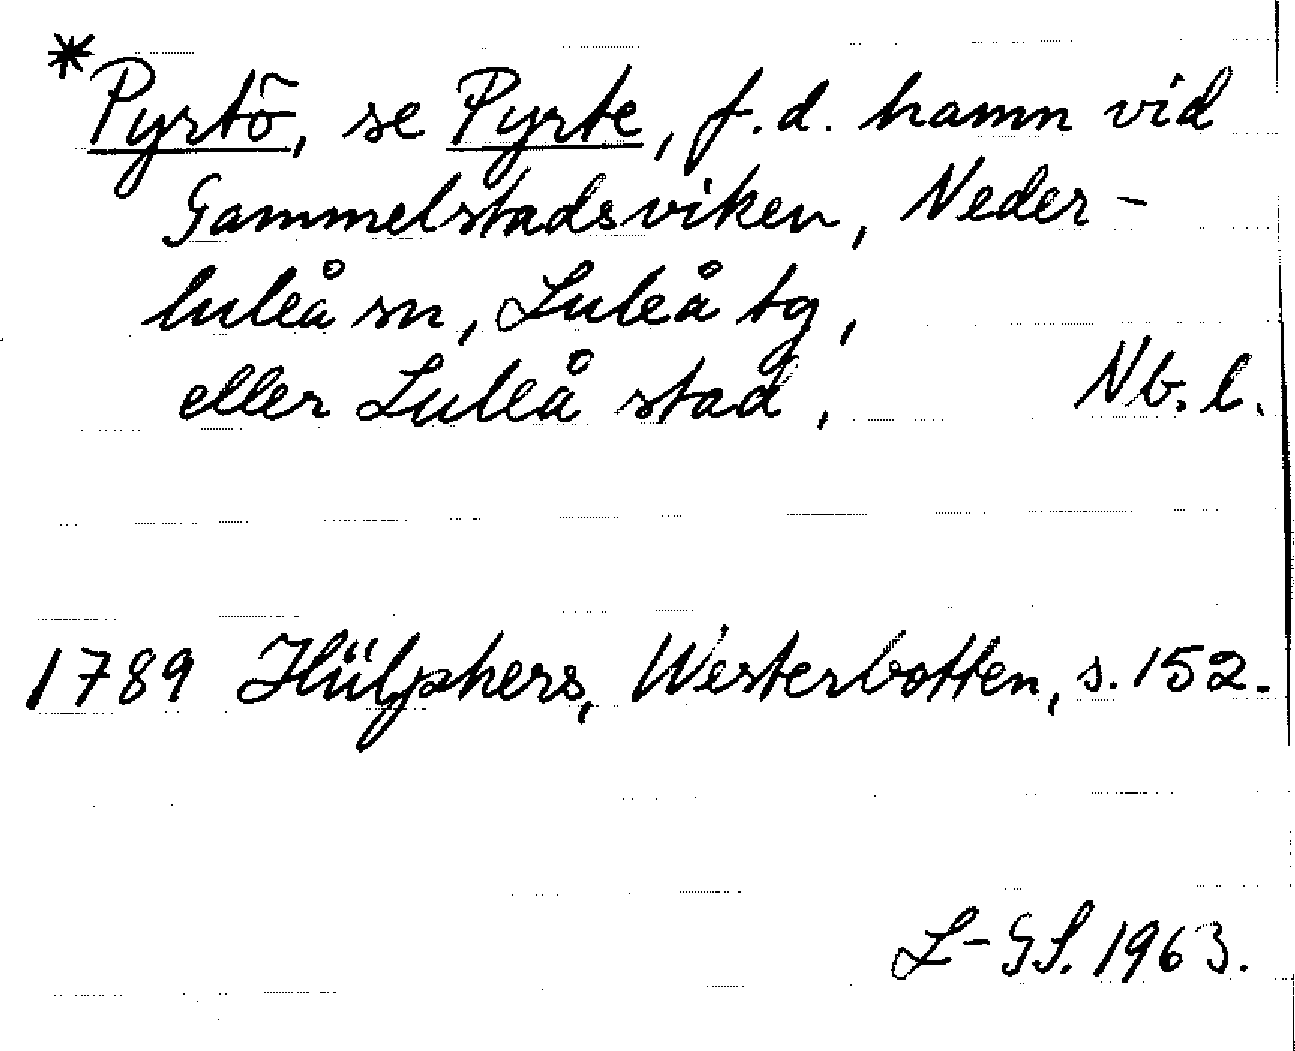 * Pyrtö, se Pyrte, f.d. hamn vid
Gammelstadsviken, Neder-
luleå sn, Luleå tg,
eller Luleå stad, Nb. l.
1789 Hülphers, Westerbotten, s. 152.
L-GS. 1963.